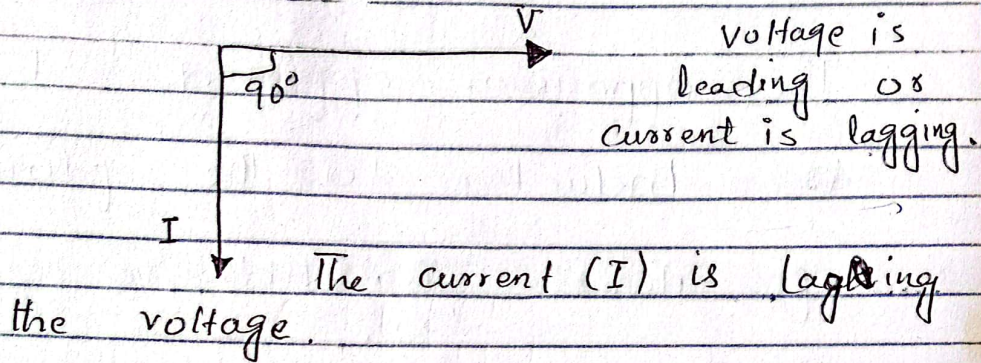 V
voltage is
leading or
current is lagging.
90°
I
The current (I) is lagging
the voltage.